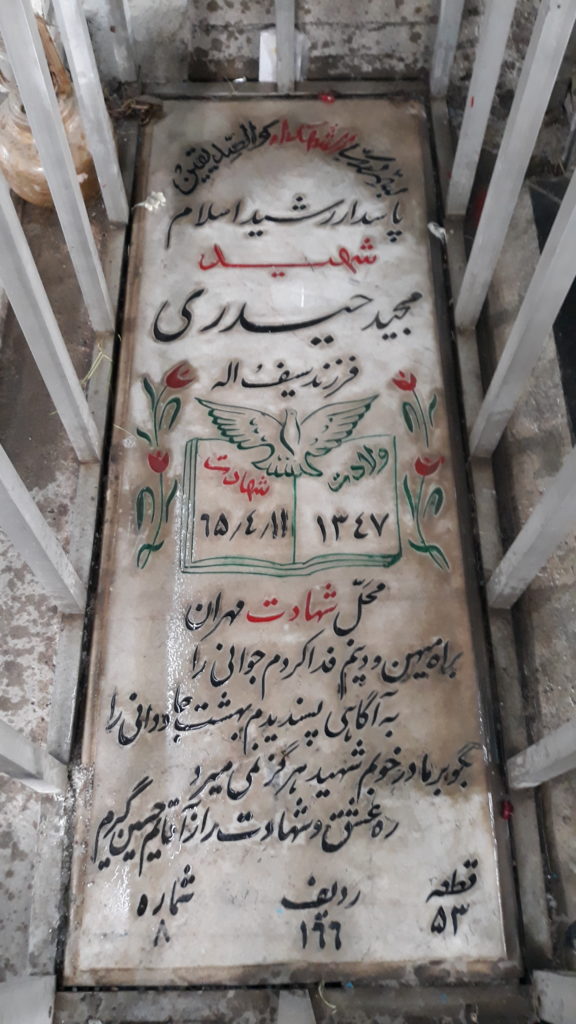 الشهداء والصدیقین
پاسدار رشید اسلام
شهید
مجید حیدری
فرزند سیف اله
ولادت شهادت
۱۳۴۷ ۶۵/۴/۱۱
محل شهادت مهران
براه میهن و دینم فدا کردم جوانی را
به آگاهی پسندیدم بهشت جاودانی را
بگو بر مادر خوبم شهید هرگز نمی میرد
ره عشق و شهادت را از آقایم حسین گیرم
قطعه ردیف شماره
۵۳ ۱۶۶ ۸